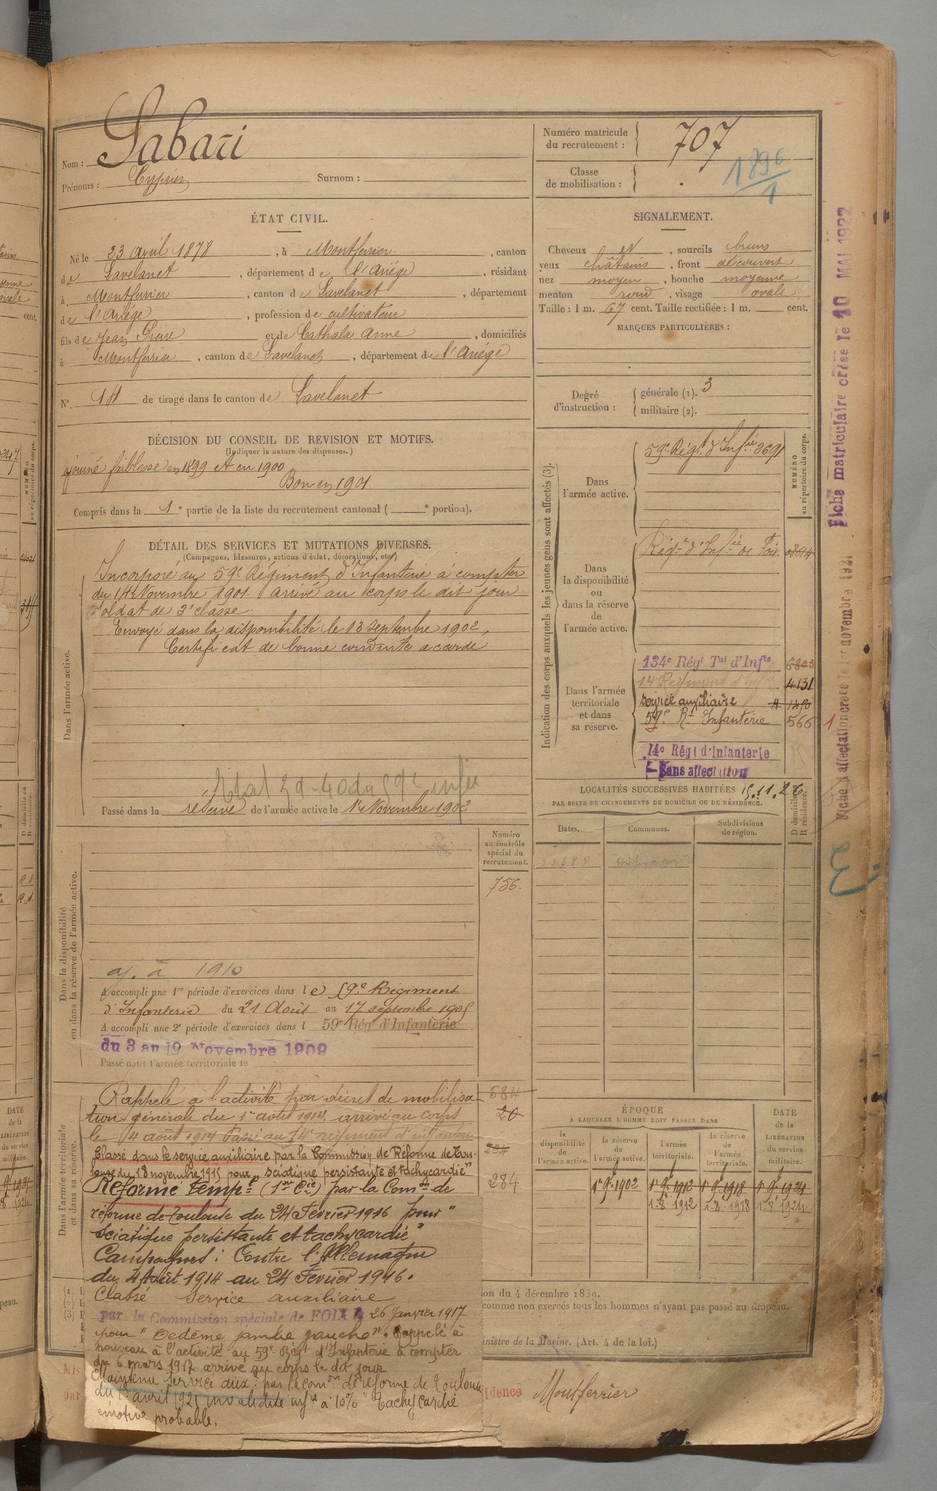 Nom : Sabari
Prénoms : Cyprien Surnom :
Numéro matricule du recrutement : 707
Classe de mobilisation :
1896
1
ÉTAT CIVIL.
Né le 23 avril 1878, à Montferrier, canton
de Lavelanet, département de l'Ariège, résidant
à Montferrier, canton de Lavelanet, département
de l'Ariège, profession de cultivateur
fils de Jean et de Cathala Anne, domiciliés
à Montferrier, canton de Lavelanet, département de l'Ariège
N° de tirage dans le canton de Lavelanet
SIGNALEMENT.
Cheveux et, sourcils bruns
yeux châtains, front découvert
nez moyen, bouche moyenne
menton rond, visage ovale
Taille : 1 m. 67 cent. Taille rectifiée : 1 m. cent.
MARQUES PARTICULIÈRES :
Degré d'instruction : générale (1). 3
militaire (2).
DÉCISION DU CONSEIL DE REVISION ET MOTIFS.
(Indiquer la nature des dispenses.)
ajourné faiblesse en 1899 et en 1900
Bon en 1901
Compris dans la 1e partie de la liste du recrutement cantonal ( e portion).
DÉTAIL DES SERVICES ET MUTATIONS DIVERSES.
(Campagnes, blessures, actions d'éclat, décorations, etc.)
Dans l'armée active.
Incorporé au 59e Régiment d'Infanterie à compter
du 14 Novembre 1901 arrivé au corps le dit jour
soldat de 2e classe.
Envoyé dans la disponibilité le 13 septembre 1902,
Certificat de bonne conduite accordé
Passé dans la réserve de l'armée active le 1er Novembre 1902
Indication des corps auxquels les jeunes gens sont affectés (3).
NUMÉRO au répertoire du corps.
Dans l'armée active.
59e Régt d'Infie
Dans la disponibilité ou dans la réserve de l'armée active.
Régt d'Infie de Foix
Dans l'armée territoriale et dans sa réserve.
134e Régt Tal d'Infie
14 Régiment d'Infie 4131
service auxiliaire
59e Rt Infanterie 566
14e Régt d'Infanterie
Sans affectation
LOCALITÉS SUCCESSIVES HABITÉES
PAR SUITE DE CHANGEMENTS DE DOMICILE OU DE RÉSIDENCE.
Dates. Communes. Subdivisions de région. D domicile. R résidence.
Numéro au contrôle spécial du recrutement.
756.
Dans la disponibilité ou dans la réserve de l'armée active.
a. à 1910
A accompli une 1re période d'exercices dans le 59e Régiment
d'Infanterie du 21 Août au 17 septembre 1905
A accompli une 2e période d'exercices dans l 59e Régt d'Infanterie
du 3 au 19 Novembre 1909
Passé dans l'armée territoriale le
Dans l'armée territoriale et dans sa réserve.
Rappelé à l'activité par décret de mobilisa-
tion générale du 1er août 1914, arrivé au corps
le 4 août 1914 Passé au 14e régiment d'infanterie
Classé dans le service auxiliaire par la Commission de Réforme de Tou-
louse du 18 novembre 1915 pour "sciatique persistante et tachycardie"
Réformé tempre (1re Cie) par la Comon de
réforme de Toulouse du 24 Février 1916 pour "
Sciatique persistante et tachycardie"
Campagnes : Contre l'Allemagne
du 4 Août 1914 au 24 Février 1916.
Classé Service auxiliaire
par la Commission spéciale de FOIX 26 janvier 1917
pour "Oedème jambe gauche". Rappelé à
nouveau à l'activité au 59e Régt d'Infanterie à compter
du 6 mars 1917 arrivé au corps le dit jour
Maintenu service aux. par la Comon de réforme de Toulouse
du 1er avril 1921 invalidité infre à 10% Tachycardie
émotive probable.
684
20
284
284
ÉPOQUE
À LAQUELLE L'HOMME DOIT PASSER DANS
la disponibilité de l'armée active.
la réserve de l'armée active.
l'armée territoriale.
la réserve de l'armée territoriale.
DATE DE LA LIBÉRATION du service militaire.
1er 9bre 1902
1er 9bre 1912
1er 9bre 1918
1er 9bre 1924
on du 4 décembre 1839.
comme non exercés tous les hommes n'ayant pas passé au drapeau.
inistre de la Marine. (Art. 4 de la loi.)
idence Montferrier
Fiche matriculaire créée le 10 MAI 1922
novembre 1921
3